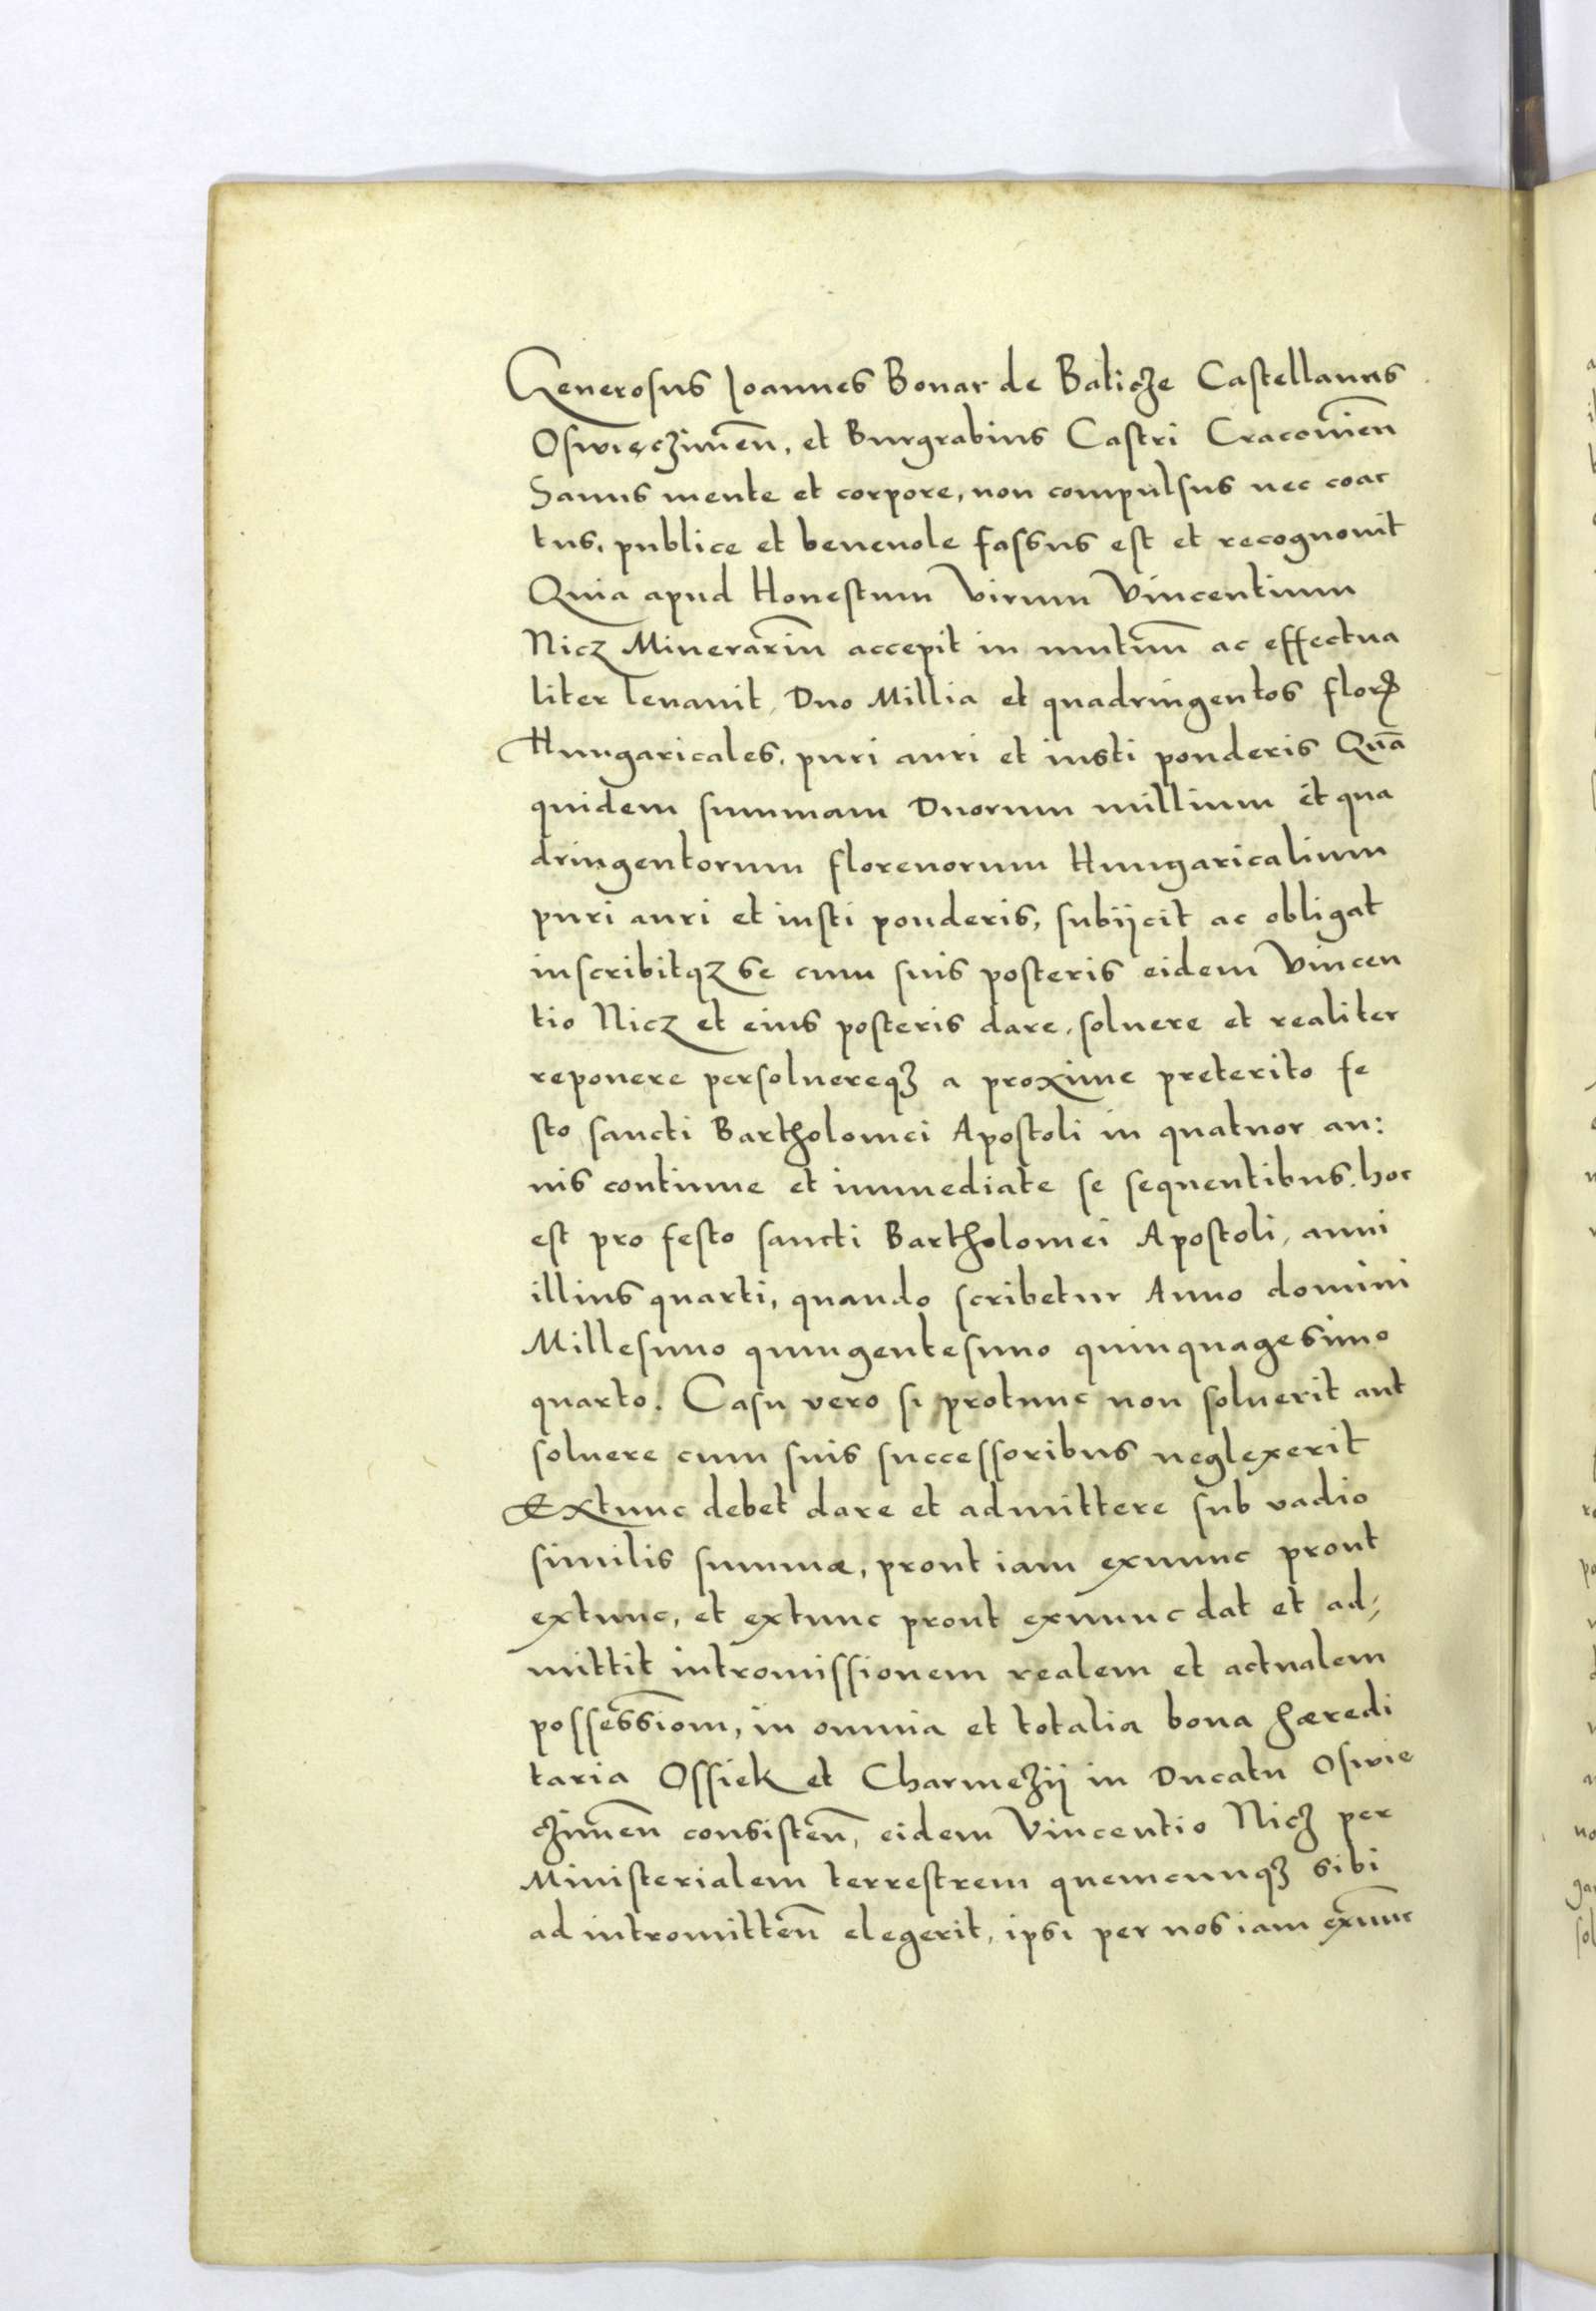 Generosus Ioannes Bonar de Balicze Castellanus
Oswięczimen̄, et Burgrabius Castri Cracouien̄
Sanus mente et corpore, non compulsus nec coac
tus, publice et beneuole fassus est et recognouit
Quia apud Honestum Virum Vincentium
Nicz Minerariū accepit in mutuū ac effectua
liter leuauit, Duo Millia et quadringentos floꝝ
Hungaricales, puri auri et iusti ponderis Quā
quidem summam Duorum millium et qua
dringentorum florenorum Hungaricalium
puri auri et iusti ponderis, subijcit ac obligat
inscribitqȝ se cum suis posteris eidem Vincen
tio Nicz et eius posteris dare, soluere et realiter
reponere persoluereqȝ a proxime preterito fe
sto sancti Bartholomei Apostoli in quatuor an:
nis continue et immediate se sequentibus. hoc
est pro festo sancti Bartholomei Apostoli, anni
illius quarti, quando scribetur Anno domini
Millesimo quingentesimo quinquagesimo
quarto. Casu vero si protunc non soluerit aut
soluere cum suis successoribus neglexerit
Extunc debet dare et admittere sub vadio
similis summæ, prout iam exnunc prout
extunc, et extunc prout exnunc dat et ad,
mittit intromissionem realem et actualem
possessiom̄, in omnia et totalia bona hæredi
taria Ossiek et Charmezij in Ducatu Oswie
czimen̄ consisten̄, eidem Vincentio Nicz per
Ministerialem terrestrem quemcunqȝ sibi
ad intromitten̄ elegerit, ipsi per nos iam exnunc